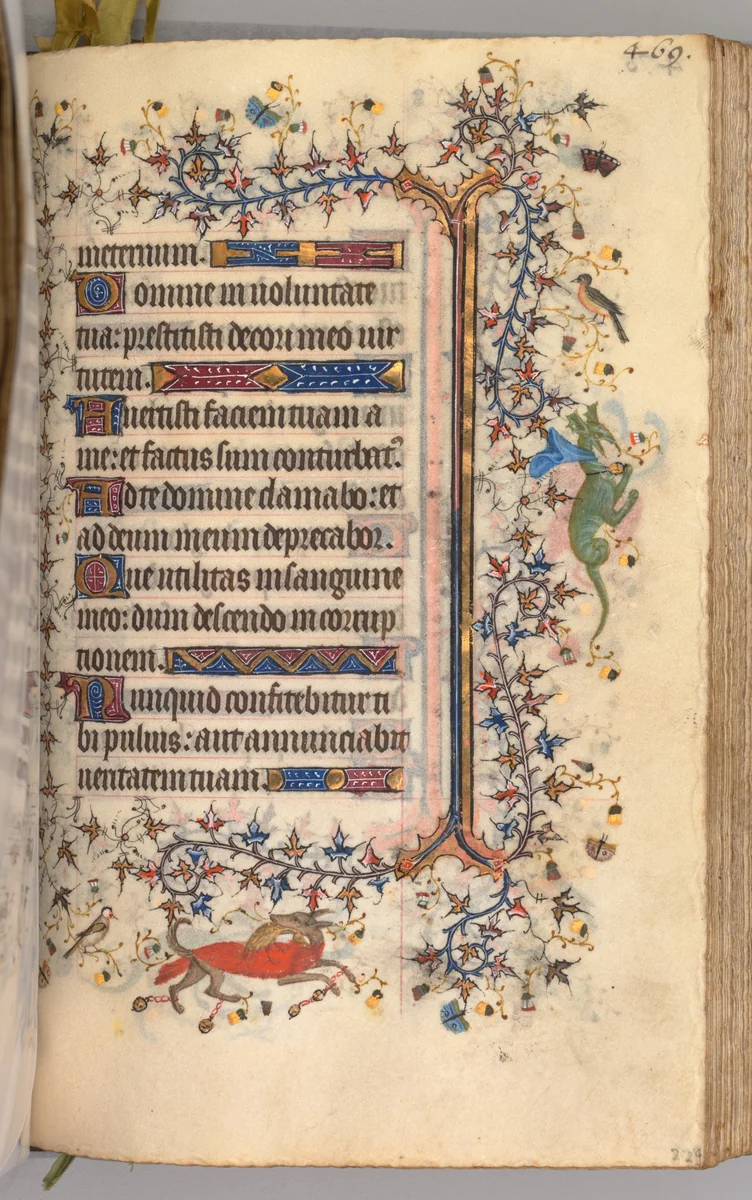 469.
meternum.
Domine in uoluntate
tua: prestitisti decori meo uir
tutem.
Auertisti faciem tuam a
me: et factus sum conturbat᾽.
Ad te domine clamabo: et
ad deum meum deprecabor.
Que utilitas in sanguine
meo: dum descendo in corrup
tionem.
Nunquid confitebitur ti
bi puluis: aut annunciabit
ueritatem tuam.